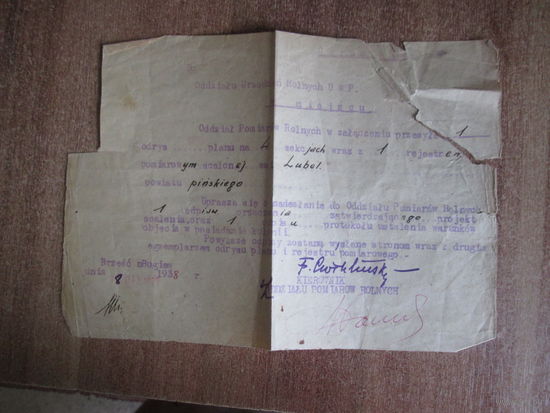 Oddziału Urządzeń Rolnych U W P.
w m i e j s c u
Oddział Pomiarów Rolnych w załączeniu przesyła 1
odrys planu na 4 sekcjach wraz z 1 rejestrem
pomiarowym scalonej wsi Lubel.
powiatu pińskiego
Uprasza się o nadesłanie do Oddziału Pomiarów Rolnych
1 odpisu orzeczenia zatwierdzającego projekt
scalenia, oraz 1 protokułu ustalenia warunków
objęcia w posiadanie kolonij.
Powyższe odpisy zostaną wysłane stronom wraz z drugim
egzemplarzem odrysu planu i rejestru pomiarowego.
Brześć n/Bugiem
dnia 8 1938 r
KIEROWNIK
ODDZIAŁU POMIARÓW ROLNYCH